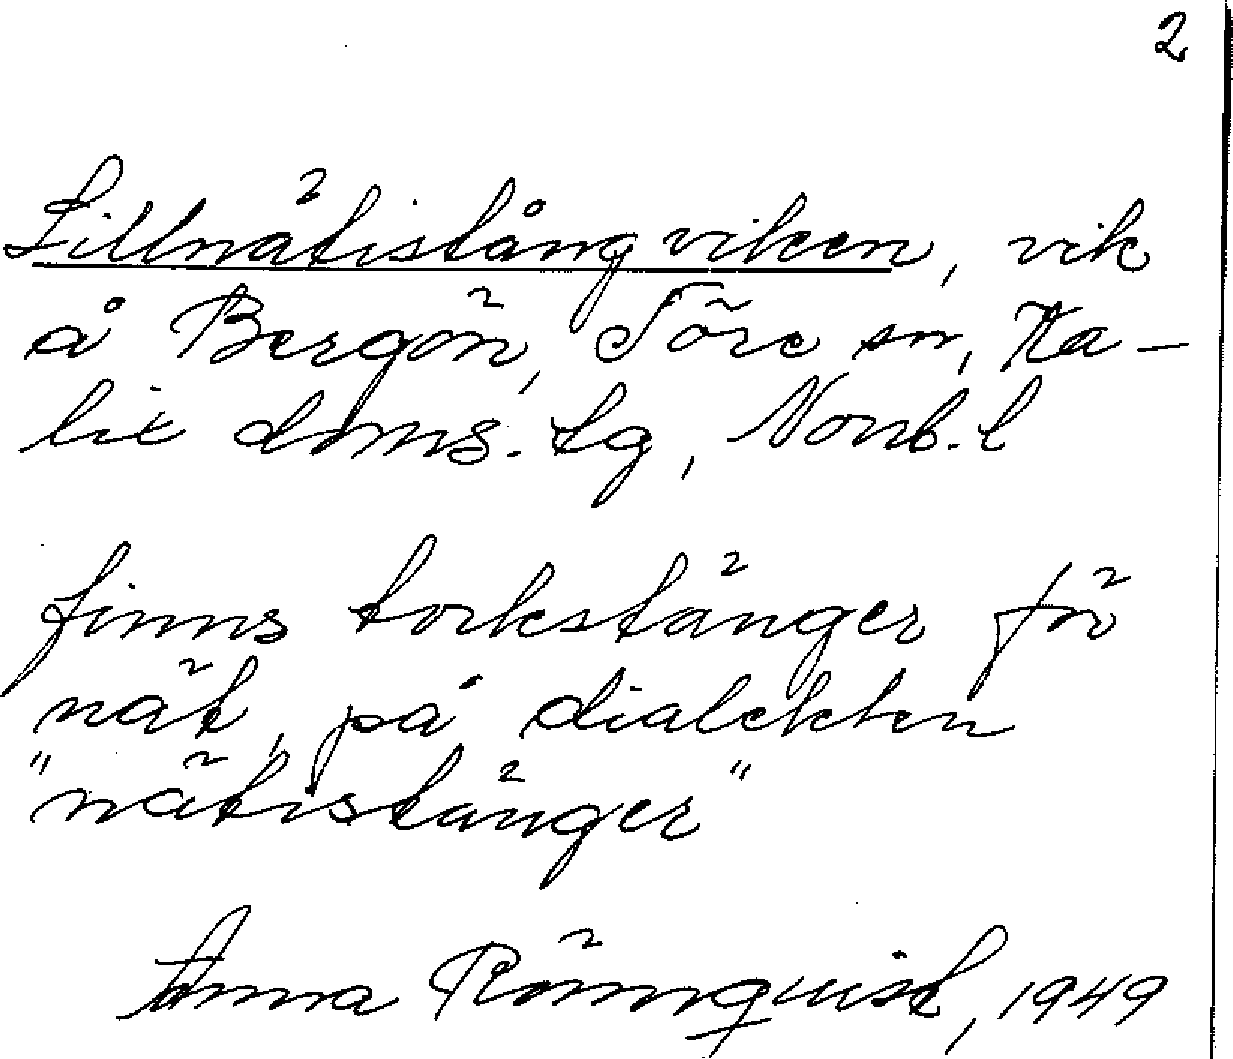 2
Lillnätistångviken, vik
å Bergön, Töre sn, Ka-
lix doms. tg, Norrb. l
finns torkstänger för
nät, på dialekten
"nätistänger"
Anna Rönnquist, 1949